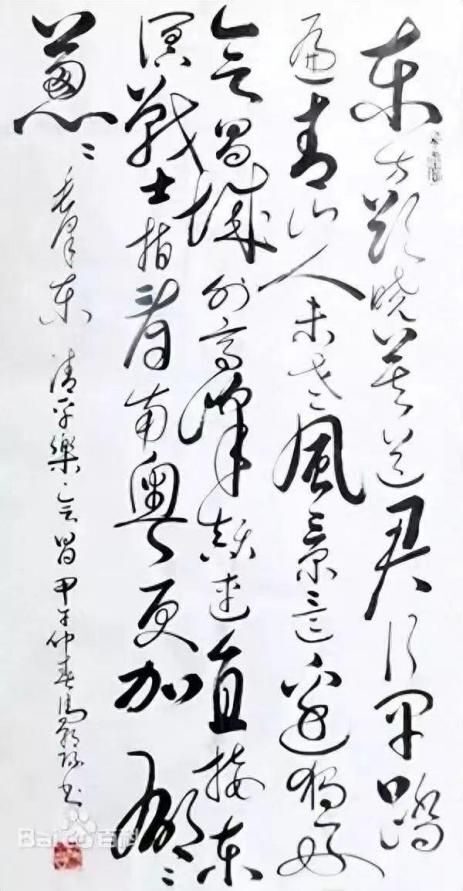 东方欲晓莫道君行早踏
遍青山人未老風景这边独好
会昌城外高峰颠连直接东
溟戰士指看南粤更加郁々
葱々 毛泽东 清平樂·会昌 甲午仲春书
Bai 百科